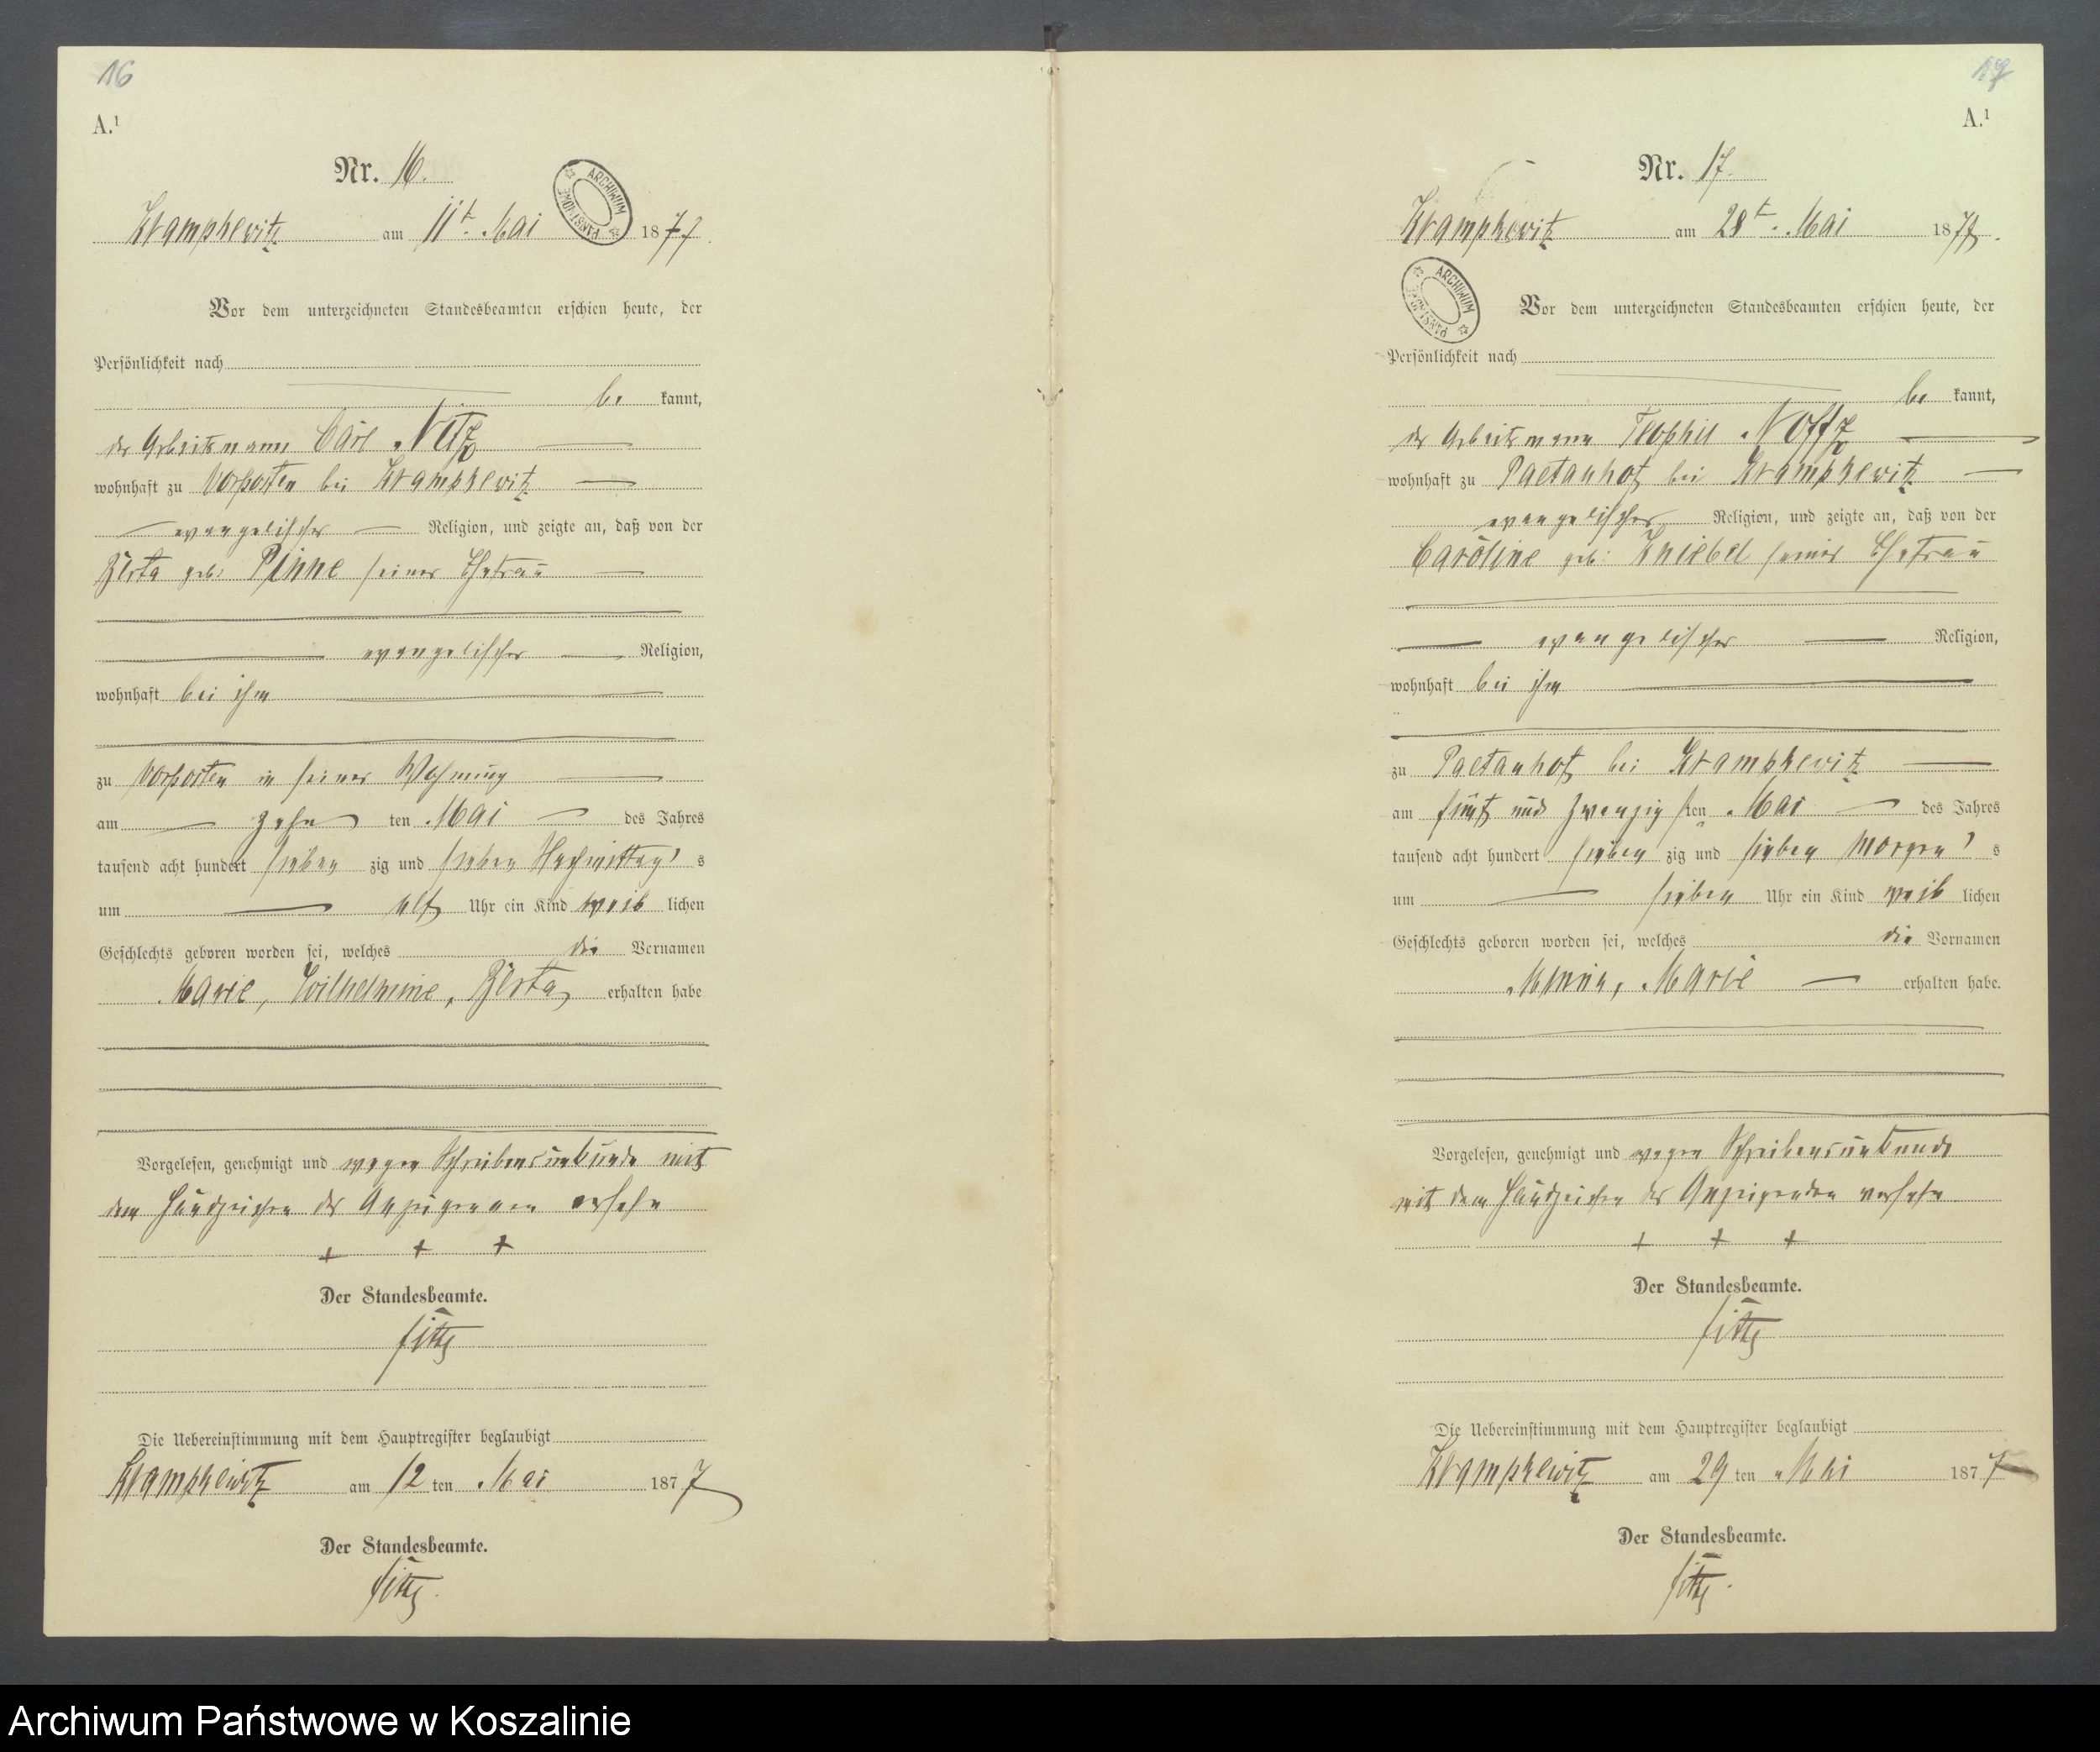 16
A.¹
Nr. 16.
Krampkewitz am 11t. Mai 1877.
ARCHIWUM PAŃSTWOWE
Vor dem unterzeichneten Standesbeamten erschien heute, der
Persönlichkeit nach
be kannt,
der Arbeitsmann Carl Nitz
wohnhaft zu Vorposten bei Krampkewitz
evangelischer Religion, und zeigte an, daß von der
Berta geb: Pinne seiner Ehefrau
evangelischer Religion,
wohnhaft bei ihm
zu Vorposten in seiner Wohnung
am zehn ten Mai des Jahres
tausend acht hundert sieben zig und sieben Nachmittag's
um elf Uhr ein Kind weib lichen
Geschlechts geboren worden sei, welches die Vornamen
Marie, Wilhelmine, Berta erhalten habe
Vorgelesen, genehmigt und wegen Schreibensunkunde mit
dem Handzeichen des Anzeigenden versehn
+ + +
Der Standesbeamte.
Die Uebereinstimmung mit dem Hauptregister beglaubigt
Krampkewitz am 12 ten Mai 1877
Der Standesbeamte.
17
A.¹
Nr. 17.
Krampkewitz am 28t. Mai 1877.
ARCHIWUM PAŃSTWOWE
Vor dem unterzeichneten Standesbeamten erschien heute, der
Persönlichkeit nach
be kannt,
der Arbeitsmann Teophil Noffz
wohnhaft zu Paetauhof bei Krampkewitz
evangelischer Religion, und zeigte an, daß von der
Caroline geb: Kniebel seiner Ehefrau
evangelischer Religion,
wohnhaft bei ihm
zu Paetauhof bei Krampkewitz
am fünf und zwanzig sten Mai des Jahres
tausend acht hundert sieben zig und sieben Morgen's
um sieben Uhr ein Kind weib lichen
Geschlechts geboren worden sei, welches die Vornamen
Minna, Marie erhalten habe.
Vorgelesen, genehmigt und wegen Schreibensunkunde
mit dem Handzeichen des Anzeigenden versehn
+ + +
Der Standesbeamte.
Die Uebereinstimmung mit dem Hauptregister beglaubigt
Krampkewitz am 29 ten Mai 1877
Der Standesbeamte.
Archiwum Państwowe w Koszalinie